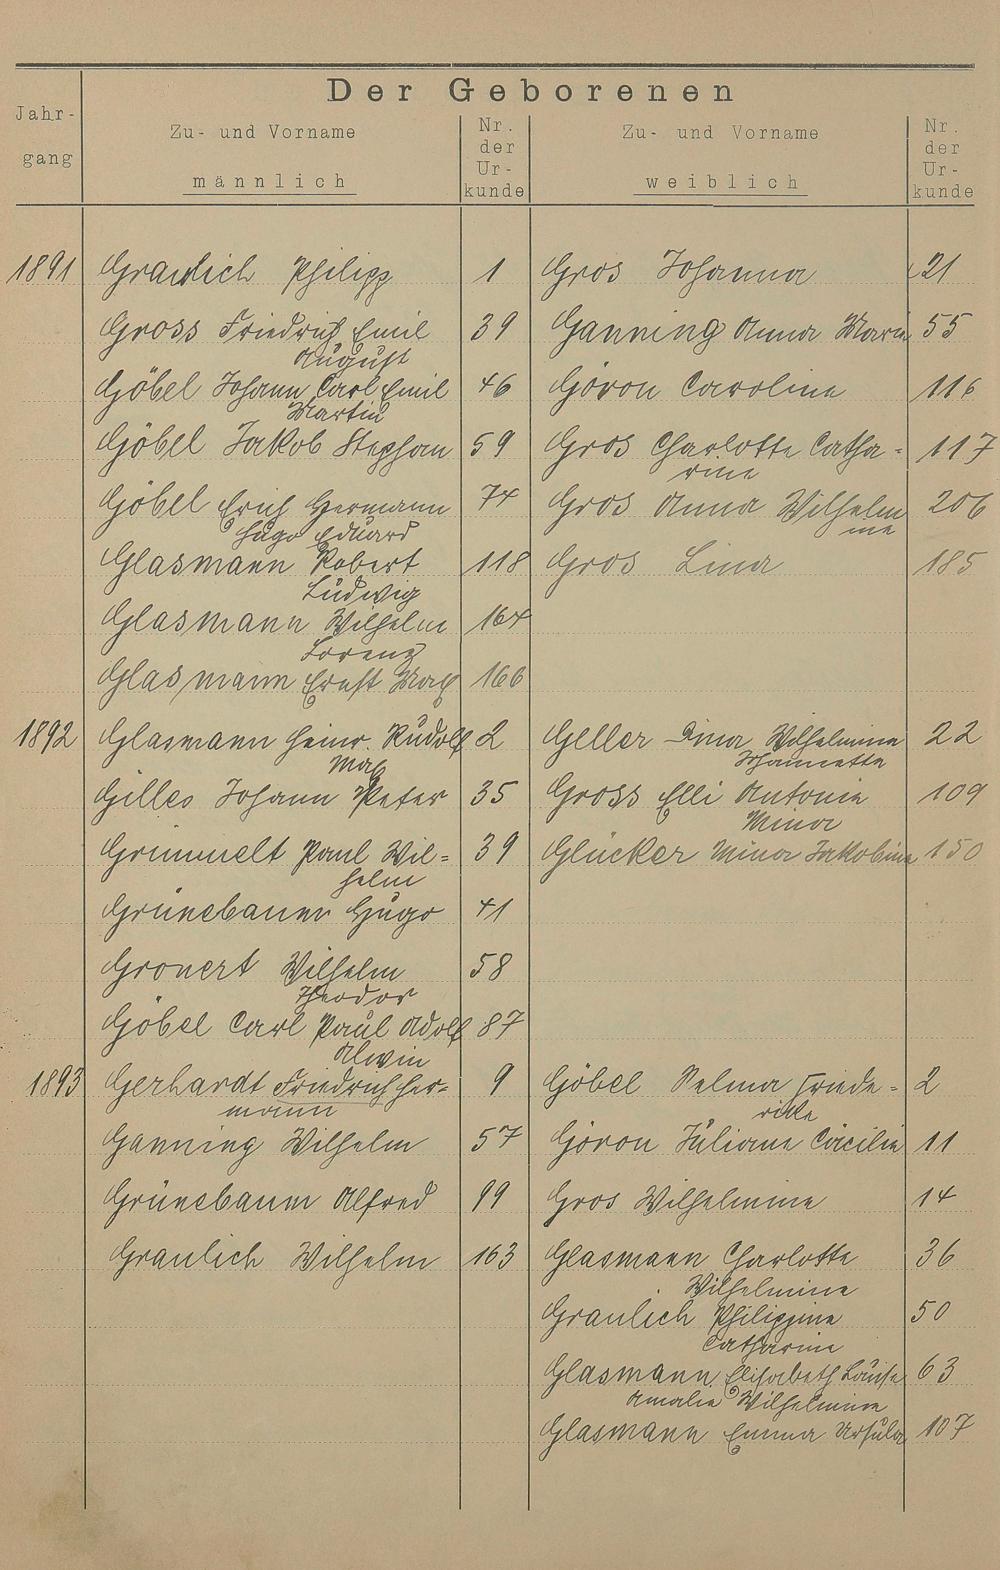 Der Geborenen
Jahr-
gang
Zu- und Vorname
männlich
Nr.
der
Ur-
kunde
Zu- und Vorname
weiblich
Nr.
der
Ur-
kunde
1891 Graulich Philipp 1 Gros Johanna 21
Gross Friedrich Emil 39 Ganning Anna Marie 55
August
Göbel Johann Carl Emil 46 Göron Caroline 116
Martin
Göbel Jakob Stephan 59 Gros Charlotte Catha- 117
rine
Göbel Erich Hermann 74 Gros Anna Wilhelm 206
Hugo Eduard ine
Glasmann Robert 118 Gros Lina 185
Ludwig
Glasmann Wilhelm 164
Lorenz
Glasmann Ernst Max 166
1892 Glasmann Heinr. Rudolf 2 Geller Lina Wilhelmine 22
Max Johannette
Gilles Johann Peter 35 Gross Elli Antonie 109
Mina
Grimmelt Paul Wil= 39 Glücker Mina Jakobine 150
helm
Grünebaum Hugo 41
Gronert Wilhelm 58
Theodor
Göbel Carl Paul Adolf 87
Alwin
1893 Gerhardt Friedrich Her- 9 Göbel Selma Friede= 2
mann rike
Ganning Wilhelm 57 Göron Juliane Cäcilie 11
Grünebaum Alfred 99 Gros Wilhelmine 14
Graulich Wilhelm 163 Glasmann Charlotte 36
Wilhelmine
Graulich Philippine 50
Catharine
Glasmann Elisabeth Luise 63
Amalie Wilhelmine
Glasmann Emma Ursula 107